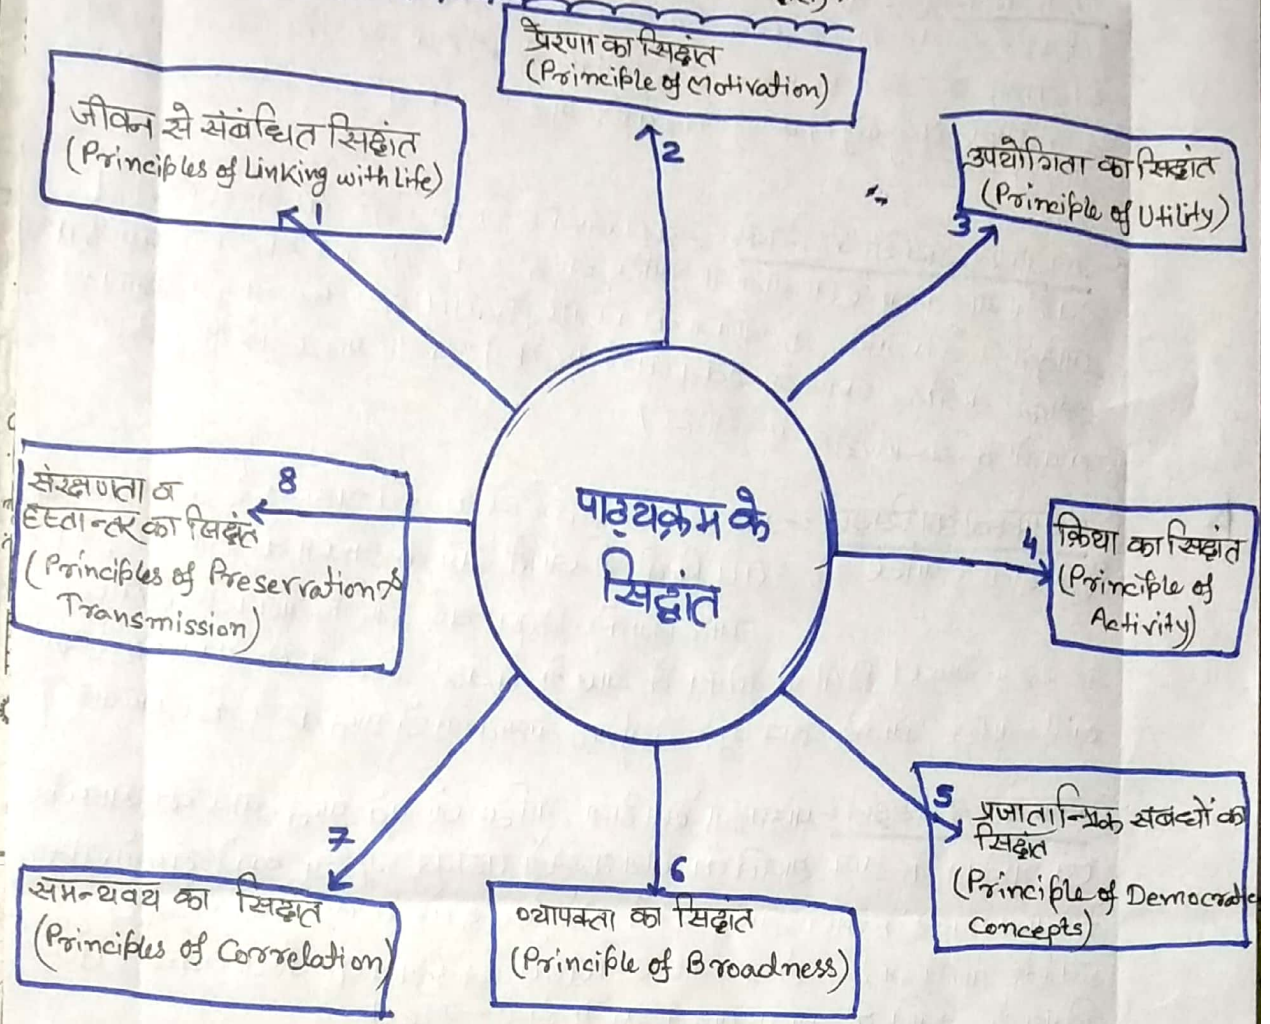 पाठ्यक्रम के
सिद्धांत
1
जीवन से संबंधित सिद्धांत
(Principles of Linking with Life)
2
प्रेरणा का सिद्धांत
(Principle of Motivation)
3
उपयोगिता का सिद्धांत
(Principle of Utility)
4
क्रिया का सिद्धांत
(Principle of
Activity)
5
प्रजातान्त्रिक संबंधों का
सिद्धांत
(Principle of Democratic
Concepts)
6
व्यापकता का सिद्धांत
(Principle of Broadness)
7
समन्यवय का सिद्धांत
(Principles of Correlation)
8
संरक्षणता व
हस्तान्तर का सिद्धांत
(Principles of Preservation &
Transmission)